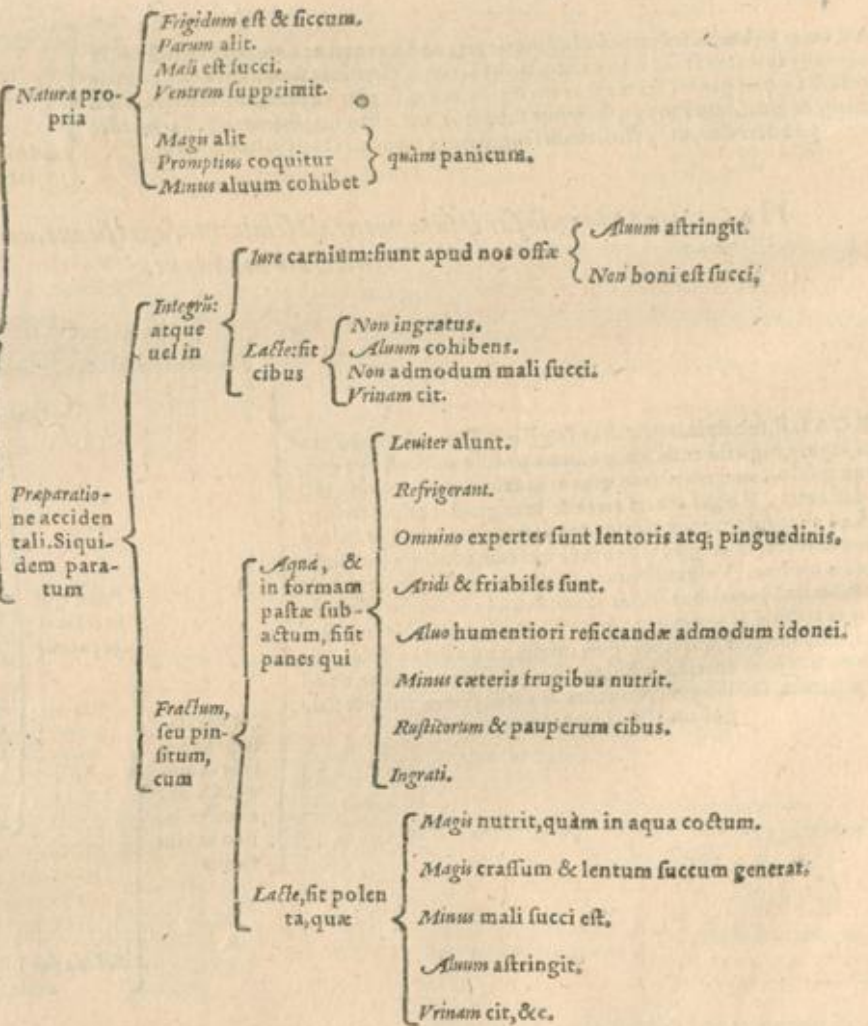 Natura pro-
pria
Frigidum est & siccum.
Parum alit.
Mali est succi.
Ventrem supprimit.
Magis alit
Promptius coquitur
Minus aluum cohibet
quàm panicum.
Præparatio-
ne acciden
tali. Siqui-
dem para-
tum
Integrũ:
atque
uel in
Iure carnium: fiunt apud nos offæ
Aluum astringit.
Non boni est succi,
Lacte: fit
cibus
Non ingratus.
Aluum cohibens.
Non admodum mali succi.
Vrinam cit.
Fractum,
seu pin-
situm,
cum
Aqua, &
in formam
pastæ sub-
actum, fiũt
panes qui
Leuiter alunt.
Refrigerant.
Omnino expertes sunt lentoris atq; pinguedinis.
Aridi & friabiles sunt.
Aluo humentiori resiccandæ admodum idonei.
Minus cæteris frugibus nutrit.
Rusticorum & pauperum cibus.
Ingrati.
Lacte, fit polen
ta, quæ
Magis nutrit, quàm in aqua coctum.
Magis crassum & lentum succum generat.
Minus mali succi est.
Aluum astringit.
Vrinam cit, &c.